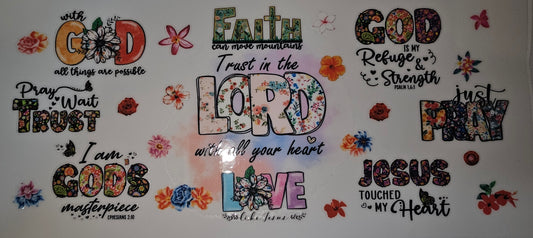 with
GOD
all things are possible
Faith
can move mountains
GOD
IS MY
Refuge &
Strength
Trust in the
LORD
with all your heart
Pray
Wait
TRUST
just
PRAY
I am
GOD'S
masterpiece
EPHESIANS 2:10
LOVE
like Jesus
JESUS
TOUCHED
MY Heart